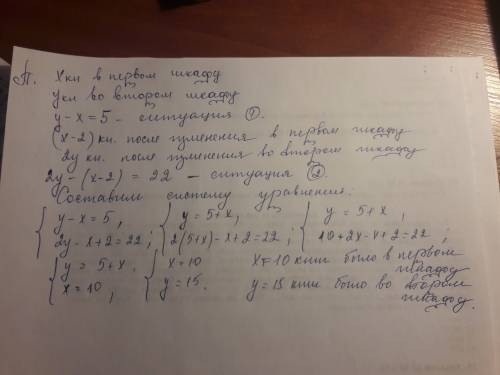 П. X кн в первом шкафу
Y кн во втором шкафу
y - x = 5 - ситуация ①.
(x-2) кн. после изменения в первом шкафу
2y кн. после изменения во втором шкафу
2y - (x-2) = 22 - ситуация ②.
Составим систему уравнения:
{ y - x = 5, { y = 5+x, { y = 5+x,
2y - x + 2 = 22; 2(5+x) - x + 2 = 22; 10 + 2x - x + 2 = 22;
{ y = 5+x. { x = 10 x = 10 книг было в первом шкафу
x = 10, y = 15. y = 15 книг было во втором шкафу.